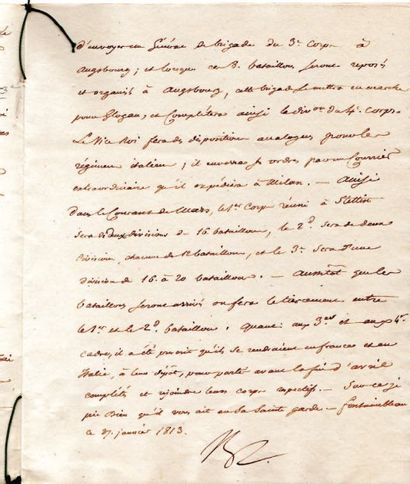 d'envoyer un Général de brigade du 3e Corps à
Augsbourg; et lorsque ces 8 bataillons seront reposés
et organisés à Augsbourg, cette brigade se mettra en marche
pour Glogau, et Complétera ainsi la division du 4e Corps.
Le Vice Roi fera des dispositions analogues pour les
régimens italiens; il enverra ses ordres par un Courrier
extraordinaire qu'il expédiera à Milan. — Ainsi
dans le Courant de Mars, le 1er Corps réuni à Stettin
sera de deux divisions de 16 bataillons, le 2d sera de deux
divisions, chacune de bataillons, et le 3e sera d'une
division de 16 à 20 bataillons. — Aussitôt que les
bataillons seront arrivés on fera le tiercement entre
le 1er et le 2d bataillons. Quant aux 3es et aux 4es
cadres, il a été prescrit qu'ils se rendraient en france et en
Italie, à leurs dépôts, pour partir avant la fin d'avril
complétés et rejoindre leurs corps respectifs. — Sur ce je
prie Dieu qu'il vous ait en sa Sainte garde — fontainebleau
ce 27 janvier 1813.